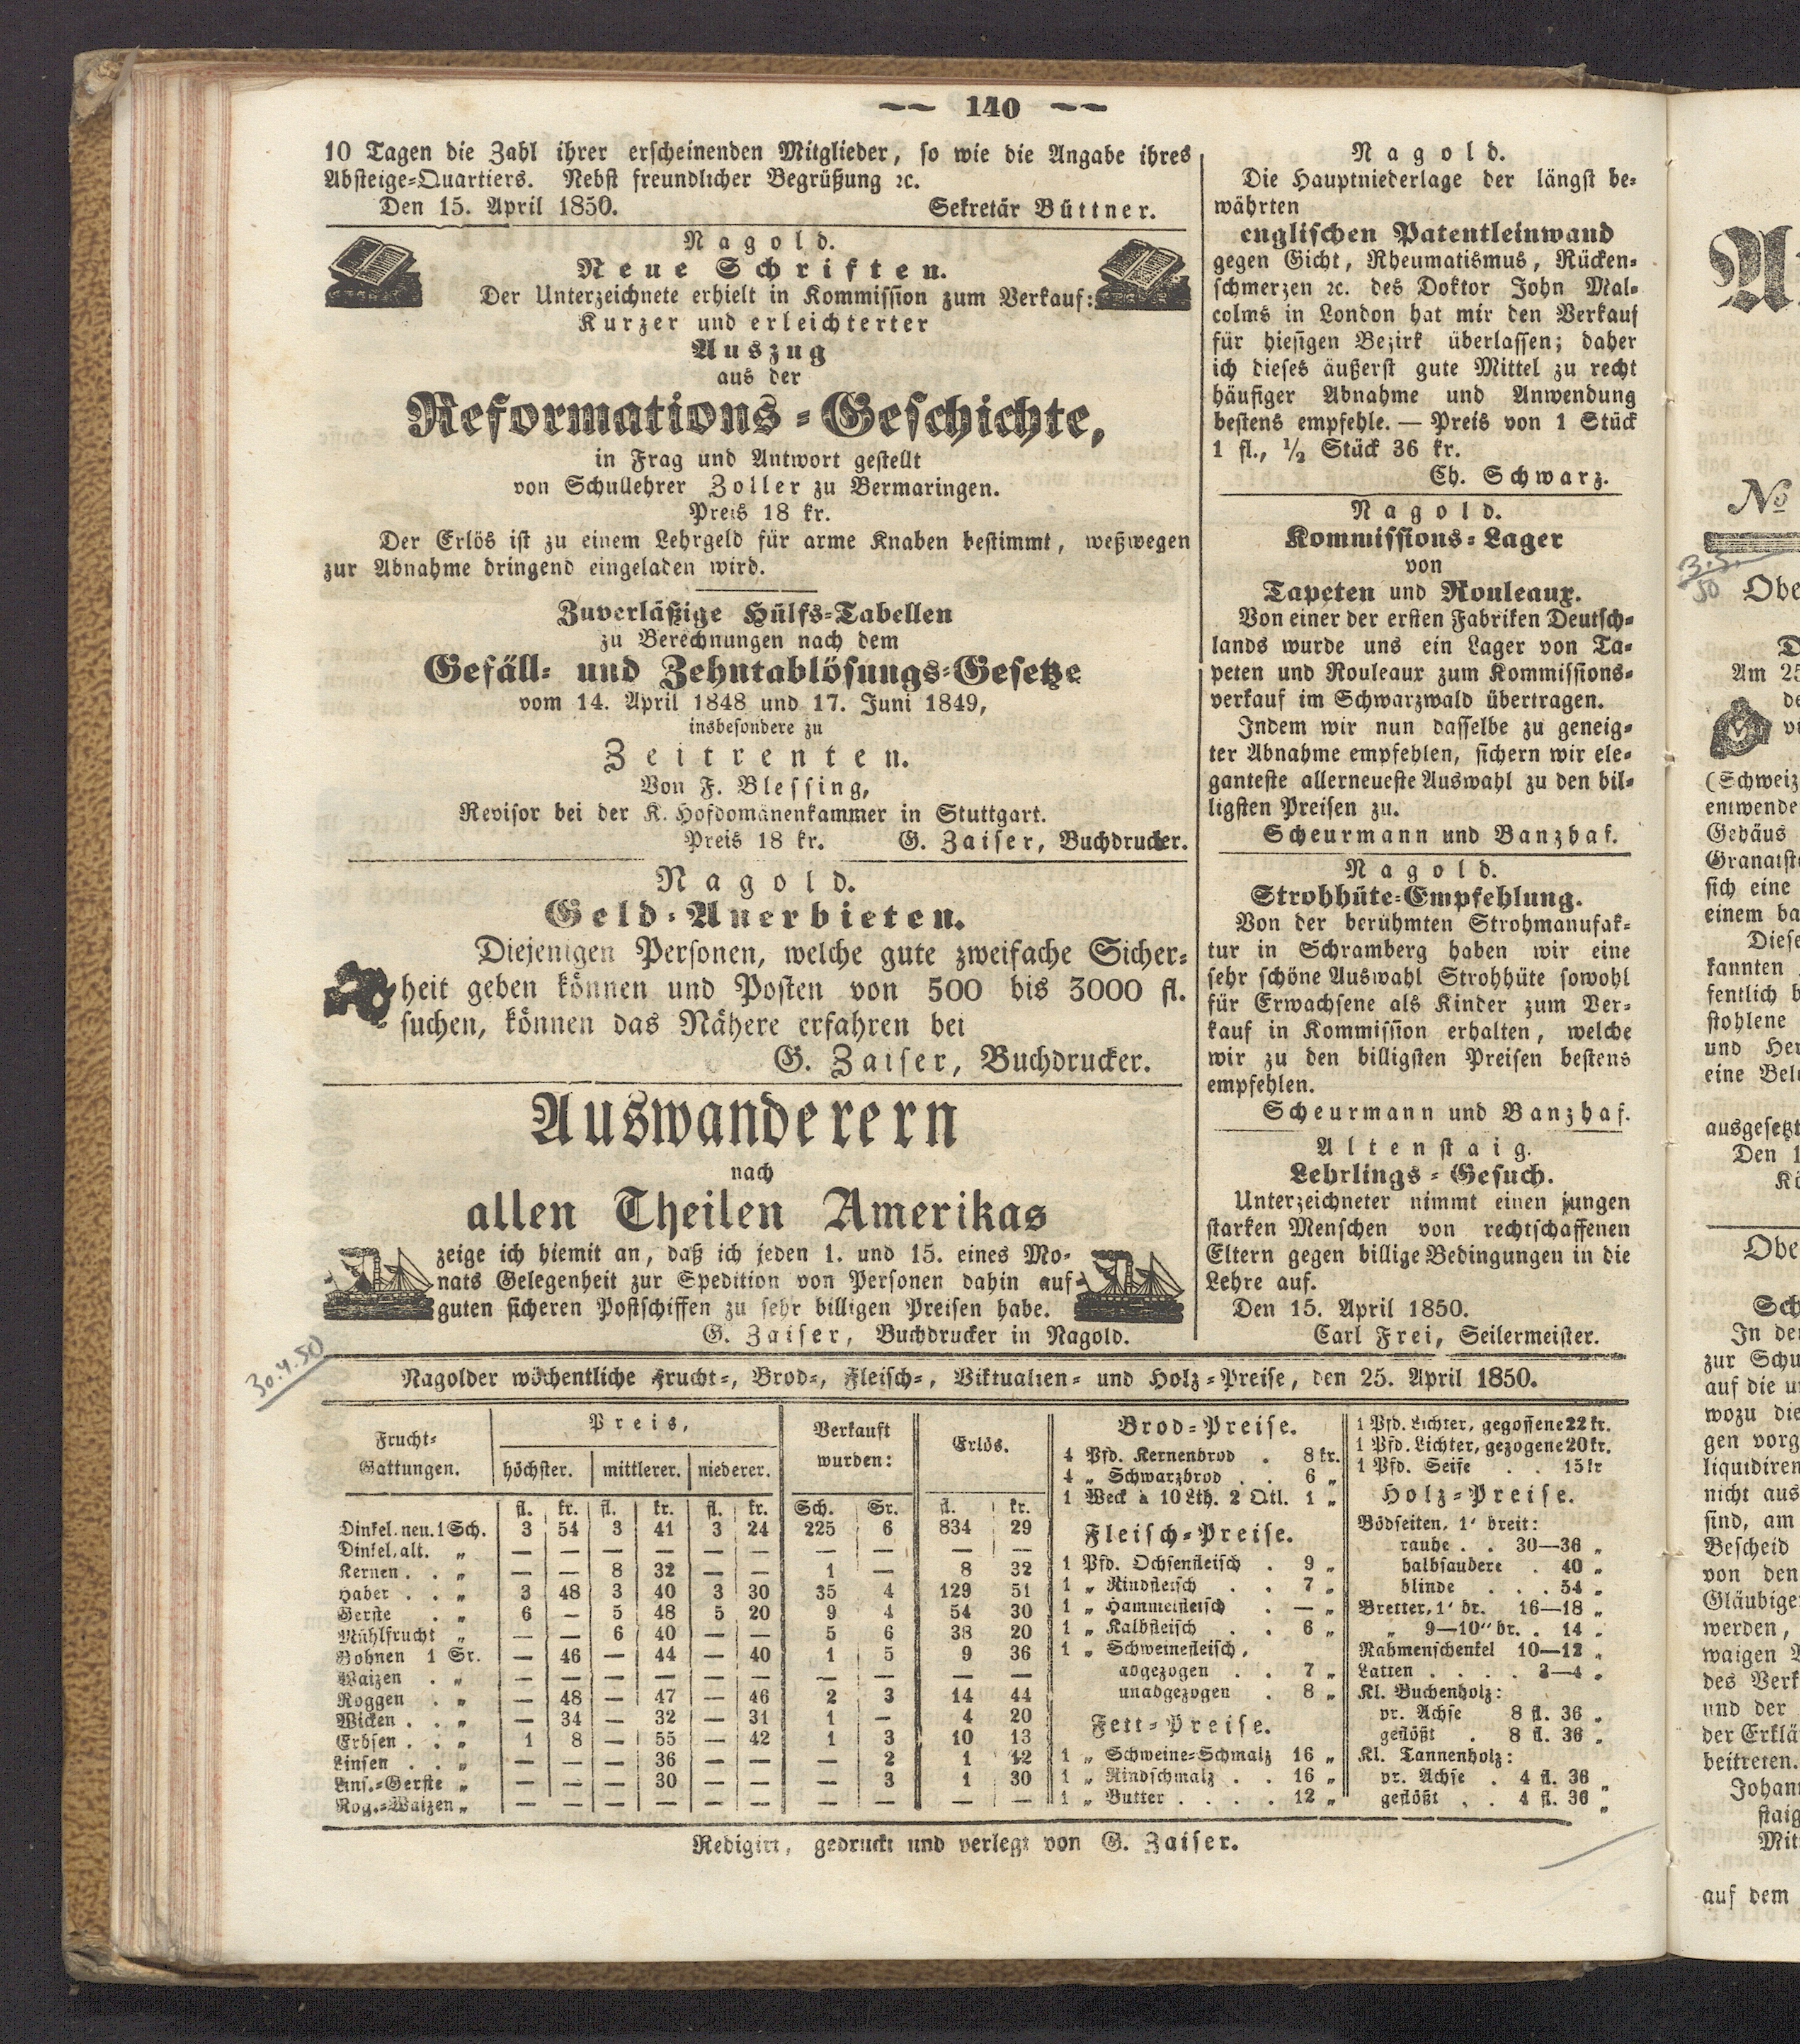 140
10 Tagen die Zahl ihrer erscheinenden Mitglieder, so wie die Angabe ihres
Absteige-Quartiers. Nebst freundlicher Begrüßung ꝛc.
Den 15. April 1850. Sekretär Büttner.
Nagold.
Neue Schriften.
Der Unterzeichnete erhielt in Kommission zum Verkauf:
Kurzer und erleichterter
Auszug
aus der
Reformations-Geschichte,
in Frag und Antwort gestellt
von Schullehrer Zoller zu Bermaringen.
Preis 18 kr.
Der Erlös ist zu einem Lehrgeld für arme Knaben bestimmt, weßwegen
zur Abnahme dringend eingeladen wird.
Zuverläßige Hülfs-Tabellen
zu Berechnungen nach dem
Gefäll- und Zehntablösungs-Gesetze
vom 14. April 1848 und 17. Juni 1849,
insbesondere zu
Zeitrenten.
Von F. Blessing,
Revisor bei der K. Hofdomänenkammer in Stuttgart.
Preis 18 kr. G. Zaiser, Buchdrucker.
Nagold.
Geld-Anerbieten.
Diejenigen Personen, welche gute zweifache Sicher-
heit geben können und Posten von 500 bis 3000 fl.
suchen, können das Nähere erfahren bei
G. Zaiser, Buchdrucker.
Auswanderern
nach
allen Theilen Amerikas
zeige ich hiemit an, daß ich jeden 1. und 15. eines Mo-
nats Gelegenheit zur Spedition von Personen dahin auf
guten sicheren Postschiffen zu sehr billigen Preisen habe.
G. Zaiser, Buchdrucker in Nagold.
Nagold.
Die Hauptniederlage der längst be-
währten
englischen Patentleinwand
gegen Gicht, Rheumatismus, Rücken-
schmerzen ꝛc. des Doktor John Mal-
colms in London hat mir den Verkauf
für hiesigen Bezirk überlassen; daher
ich dieses äußerst gute Mittel zu recht
häufiger Abnahme und Anwendung
bestens empfehle. — Preis von 1 Stück
1 fl., ½ Stück 36 kr.
Ch. Schwarz.
Nagold.
Kommissions-Lager
von
Tapeten und Rouleaux.
Von einer der ersten Fabriken Deutsch-
lands wurde uns ein Lager von Ta-
peten und Rouleaux zum Kommissions-
verkauf im Schwarzwald übertragen.
Indem wir nun dasselbe zu geneig-
ter Abnahme empfehlen, sichern wir ele-
ganteste allerneueste Auswahl zu den bil-
ligsten Preisen zu.
Scheurmann und Banzhaf.
Nagold.
Strohhüte-Empfehlung.
Von der berühmten Strohmanufak-
tur in Schramberg haben wir eine
sehr schöne Auswahl Strohhüte sowohl
für Erwachsene als Kinder zum Ver-
kauf in Kommission erhalten, welche
wir zu den billigsten Preisen bestens
empfehlen.
Scheurmann und Banzhaf.
Altenstaig.
Lehrlings-Gesuch.
Unterzeichneter nimmt einen jungen
starken Menschen von rechtschaffenen
Eltern gegen billige Bedingungen in die
Lehre auf.
Den 15. April 1850.
Carl Frei, Seilermeister.
30.4.50
Nagolder wöchentliche Frucht-, Brod-, Fleisch-, Viktualien- und Holz-Preise, den 25. April 1850.
Frucht-Gattungen. Preis, Verkauft wurden: Erlös.
höchster. mittlerer. niederer.
fl. kr. fl. kr. fl. kr. Sch. Sr. fl. kr.
Dinkel, neu. 1 Sch. 3 54 3 41 3 24 225 6 834 29
Dinkel, alt. „ — — — — — — — — — —
Kernen . . „ — — 8 32 — — 1 — 8 32
Haber . . „ 3 48 3 40 3 30 35 4 129 51
Gerste . „ 6 — 5 48 5 20 9 4 54 30
Mühlfrucht „ — — 6 40 — — 5 6 38 20
Bohnen 1 Sr. — 46 — 44 — 40 1 5 9 36
Waizen . „ — — — — — — — — — —
Roggen . „ — 48 — 47 — 46 2 3 14 44
Wicken . . „ — 34 — 32 — 31 1 — 4 20
Erbsen . . „ 1 8 — 55 — 42 1 3 10 13
Linsen . . „ — — — 36 — — — 2 1 12
Lins.-Gerste „ — — — 30 — — — 3 1 30
Rog.-Waizen „ — — — — — — — — — —
Brod-Preise.
4 Pfd. Kernenbrod . 8 kr.
4 „ Schwarzbrod . . 6 „
1 Weck à 10 Lth. 2 Qtl. 1 „
Fleisch-Preise.
1 Pfd. Ochsenfleisch . 9 „
1 „ Rindfleisch . . 7 „
1 „ Hammelfleisch . — „
1 „ Kalbfleisch . . 6 „
1 „ Schweinefleisch,
abgezogen . . 7 „
unabgezogen . 8 „
Fett-Preise.
1 „ Schweine-Schmalz 16 „
1 „ Rindschmalz . . 16 „
1 „ Butter . . . . 12 „
1 Pfd. Lichter, gegossene 22 kr.
1 Pfd. Lichter, gezogene 20 kr.
1 Pfd. Seife . . 15 kr
Holz-Preise.
Bödseiten, 1' breit:
rauhe . . 30—36 „
halbsaubere . 40 „
blinde . . . 54 „
Bretter, 1' br. 16—18 „
„ 9—10" br. . 14 „
Rahmenschenkel 10—12 „
Latten . . . . 3—4 „
Kl. Buchenholz:
pr. Achse 8 fl. 36 „
geflößt . 8 fl. 36 „
Kl. Tannenholz:
pr. Achse . 4 fl. 36 „
geflößt . . 4 fl. 36 „
Redigirt, gedruckt und verlegt von G. Zaiser.
No
Obe
Am 25
(Schweiz
entwende
Gehäus
sich eine
einem ba
Diese
kannten
fentlich b
stohlene
und Her
eine Bel
ausgesetzt
Den 1
Obe
Sch
In der
zur Schu
auf die u
wozu die
gen vorg
liquidiren
nicht aus
sind, am
Bescheid
von den
Gläubige
werden,
waigen V
des Verk
und der
der Erklä
beitreten.
Johann
staig
Mit
auf dem